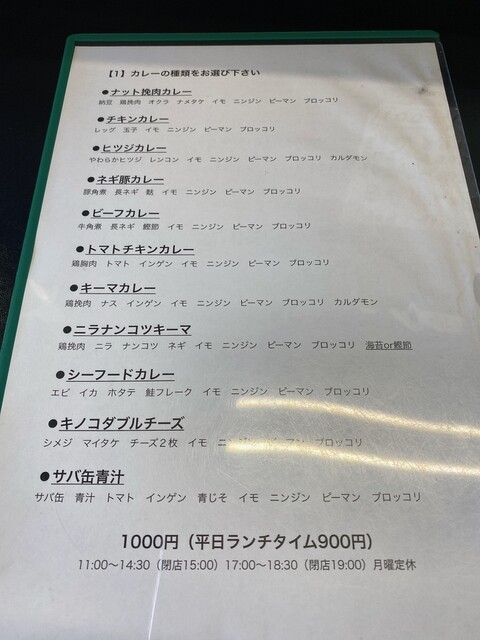 【1】カレーの種類をお選び下さい
●ナット挽肉カレー
納豆 鶏挽肉 オクラ ナメタケ イモ ニンジン ピーマン ブロッコリ
●チキンカレー
レッグ 玉子 イモ ニンジン ピーマン ブロッコリ
●ヒツジカレー
やわらかヒツジ レンコン イモ ニンジン ピーマン ブロッコリ カルダモン
●ネギ豚カレー
豚角煮 長ネギ 麩 イモ ニンジン ピーマン ブロッコリ
●ビーフカレー
牛角煮 長ネギ 鰹節 イモ ニンジン ピーマン ブロッコリ
●トマトチキンカレー
鶏胸肉 トマト インゲン イモ ニンジン ピーマン ブロッコリ
●キーマカレー
鶏挽肉 ナス インゲン イモ ニンジン ピーマン ブロッコリ カルダモン
●ニラナンコツキーマ
鶏挽肉 ニラ ナンコツ ネギ イモ ニンジン ピーマン ブロッコリ 海苔or鰹節
●シーフードカレー
エビ イカ ホタテ 鮭フレーク イモ ニンジン ピーマン ブロッコリ
●キノコダブルチーズ
シメジ マイタケ チーズ2枚 イモ ニンジン ピーマン ブロッコリ
●サバ缶青汁
サバ缶 青汁 トマト インゲン 青じそ イモ ニンジン ピーマン ブロッコリ
1000円（平日ランチタイム900円）
11:00〜14:30（閉店15:00）17:00〜18:30（閉店19:00）月曜定休